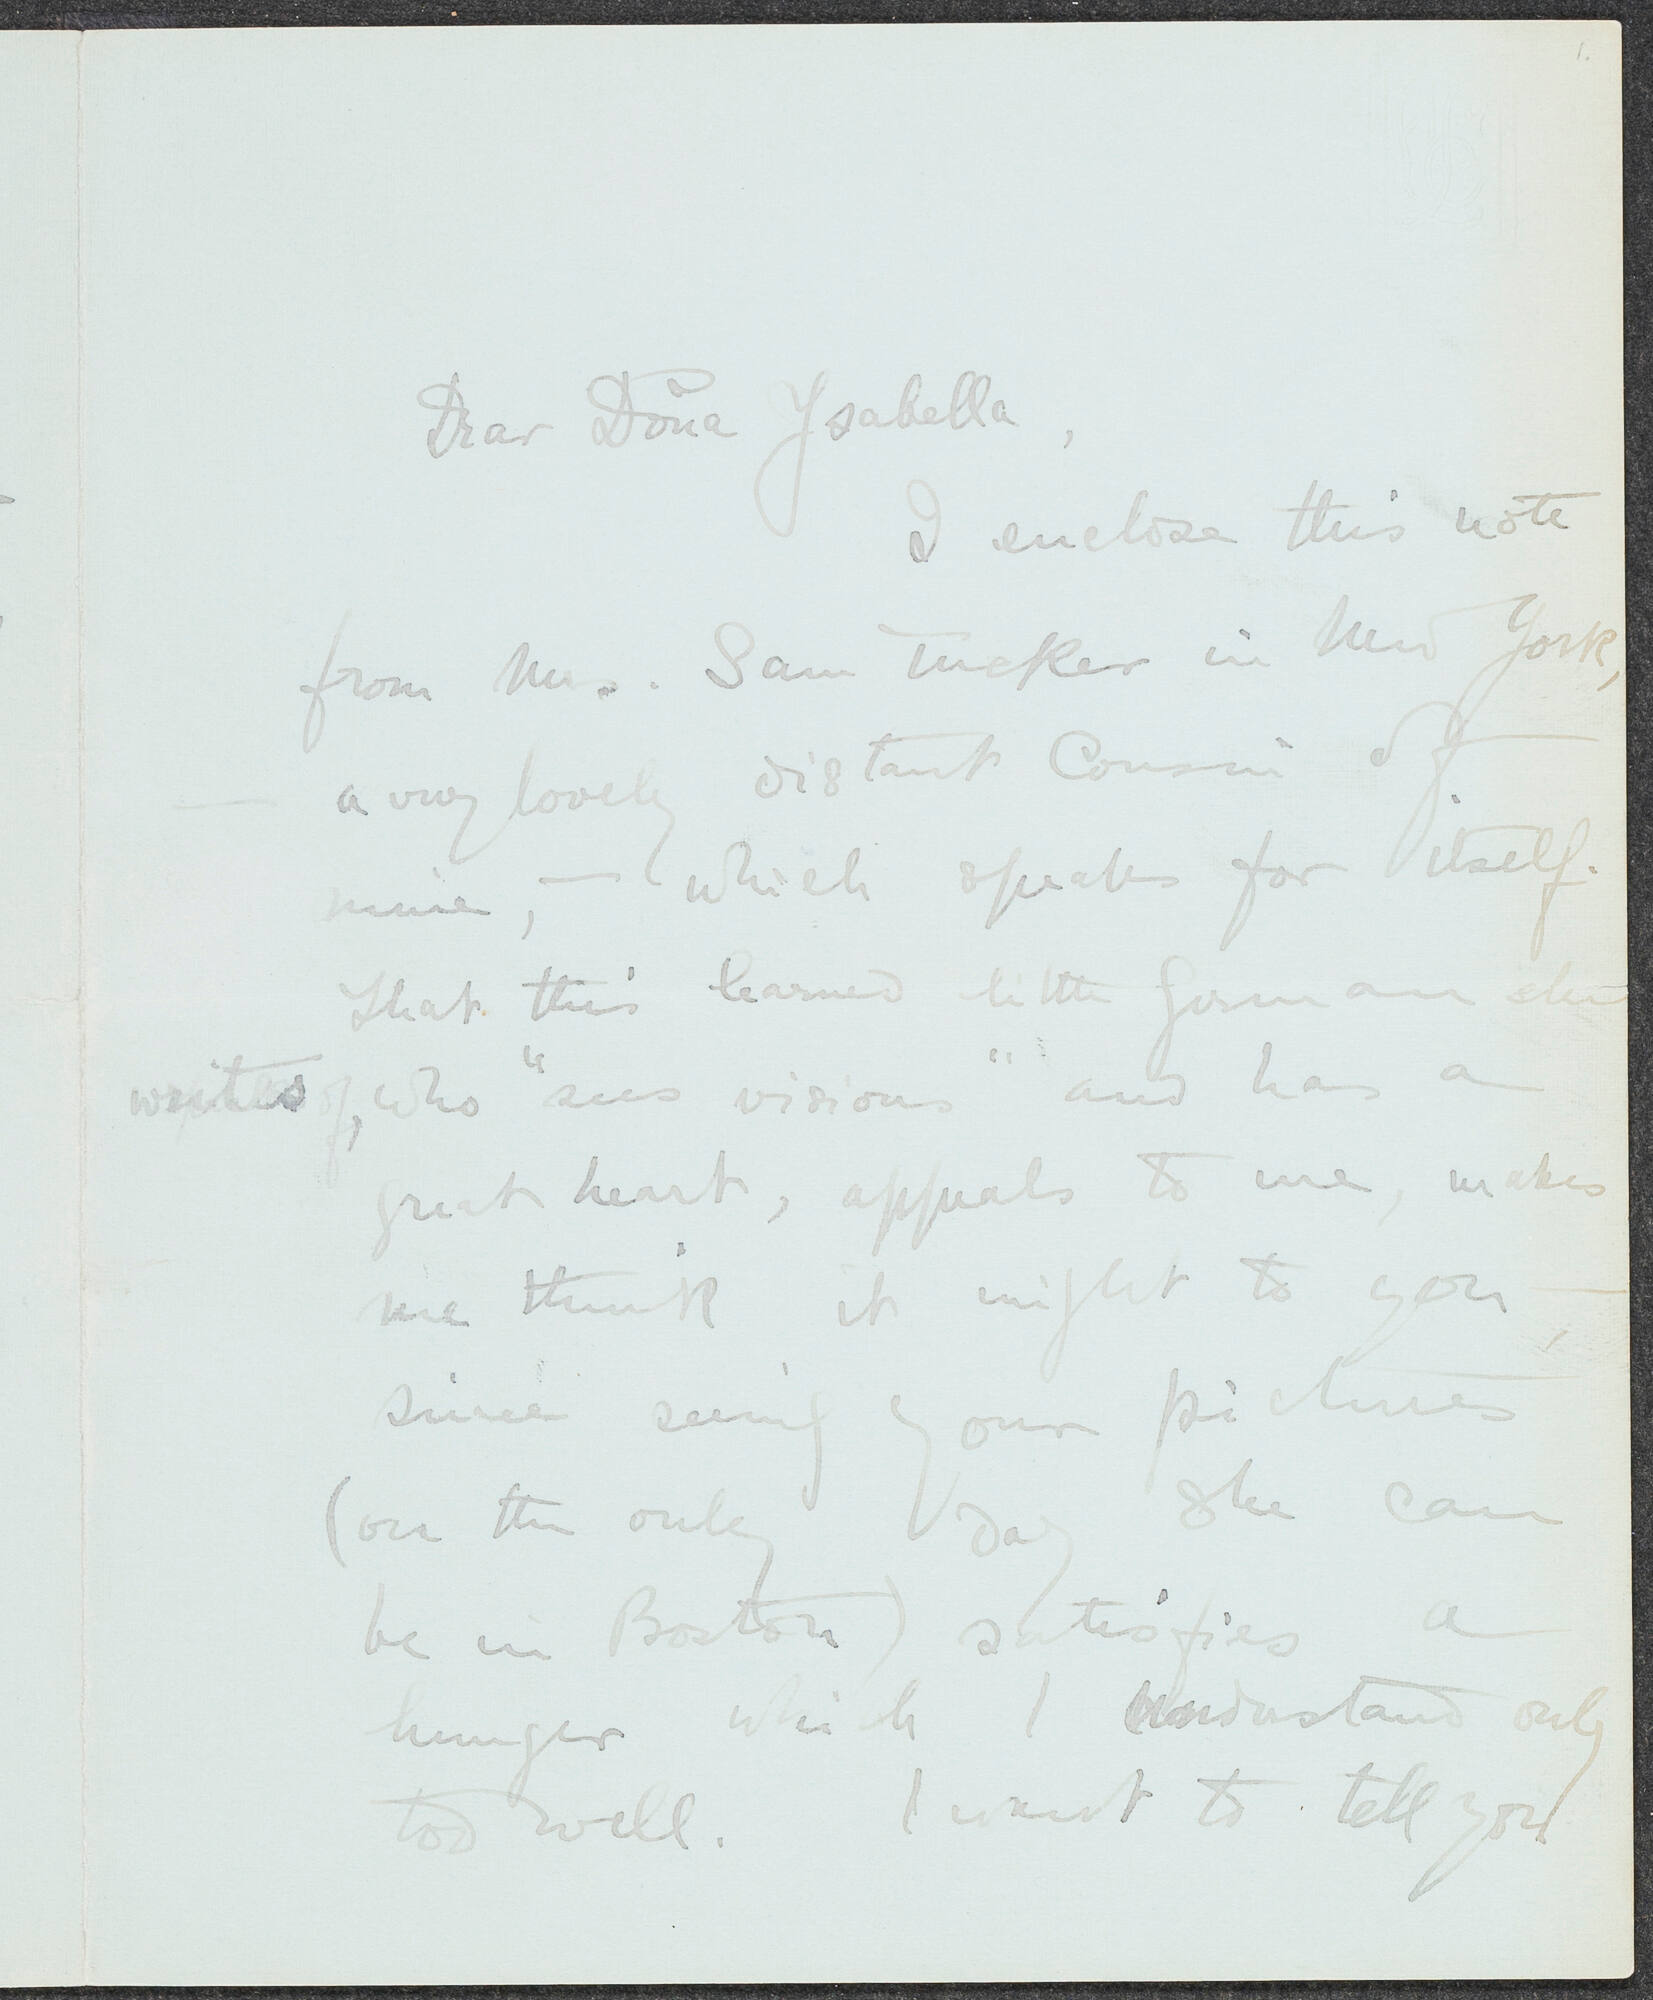 1.
Dear Doña Ysabella,
I enclose this note
from Mrs. Sam Tucker in New York,
a very lovely distant Cousin of
mine, — which speaks for itself.
That this learned little German she
writes of, who "sees visions" and has a
great heart, appeals to me, makes
me think it might to you —,
since seeing your pictures
(on the only day she can
be in Boston) satisfies a
hunger which I understand only
too well. I want to tell you